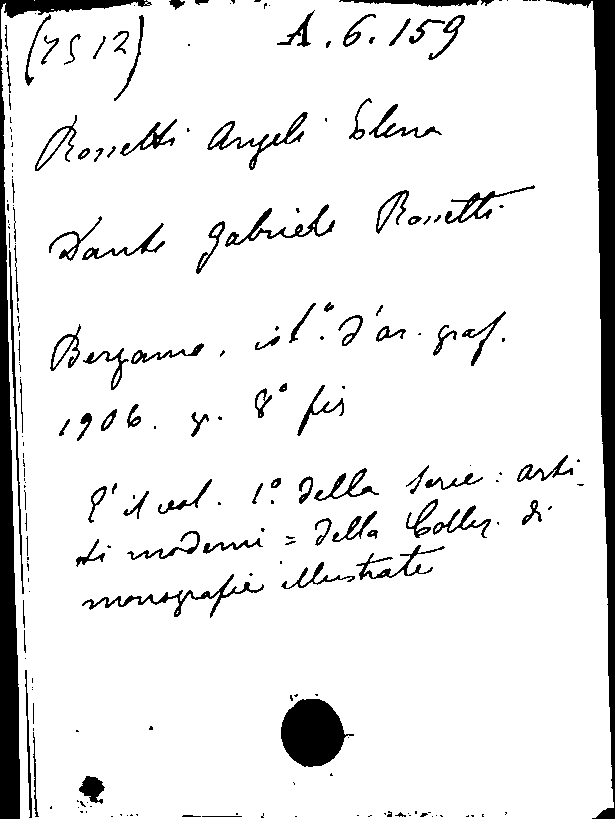 (7512) A.6.159
Rossetti Angeli Elena
Dante Gabriele Rossetti
Bergamo, ist.° d'ar. graf.
1906. g. 8° fis
E' il vol. 1.° della serie: arti-
sti moderni = della Collez. di
monografie illustrate